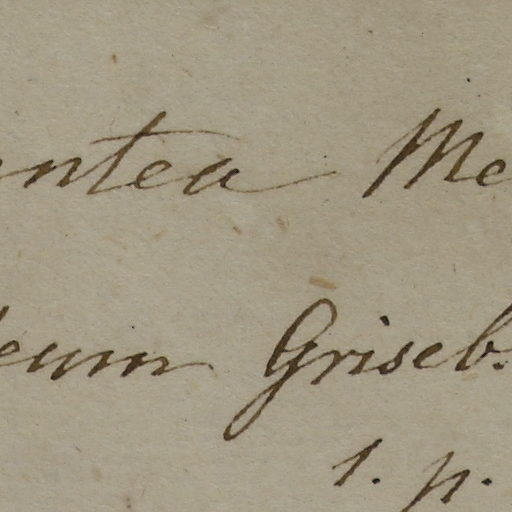 ntea Me
eum Griseb.
1. p.